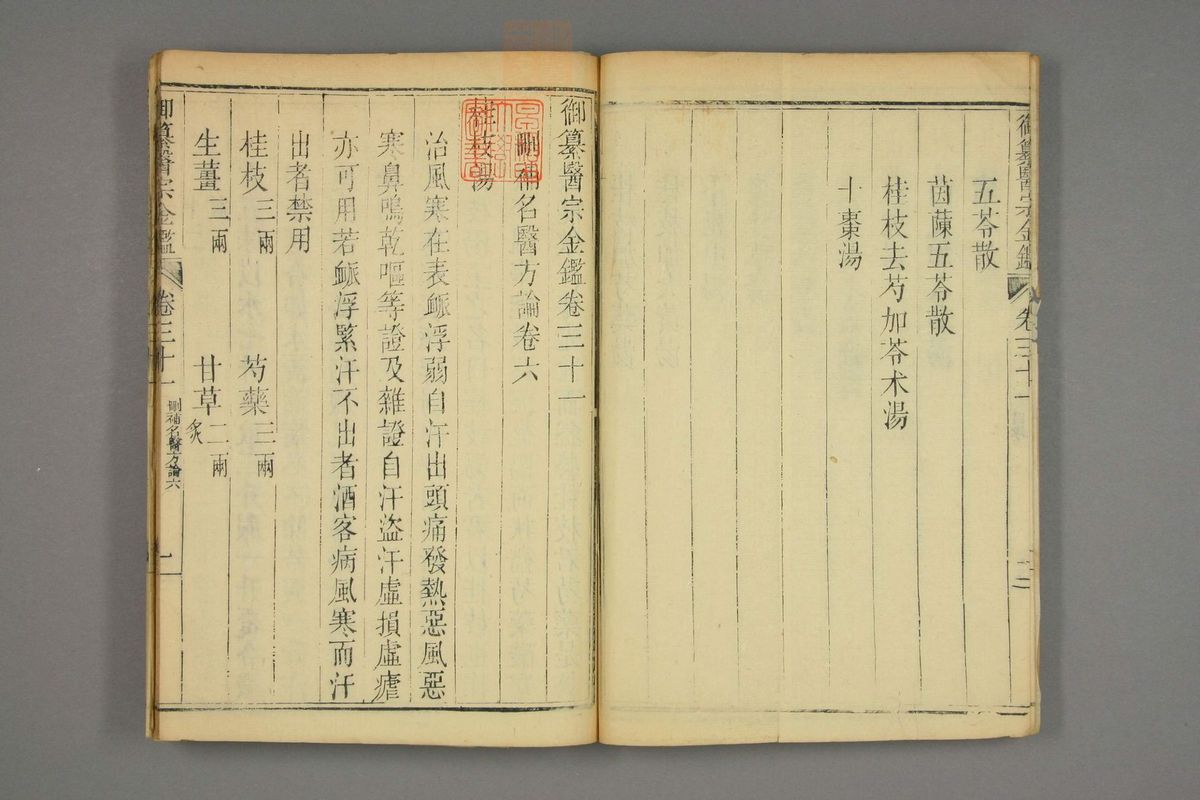 御纂醫宗金鑑
卷三十一
二
五苓散
茵蔯五苓散
桂枝去芍加苓朮湯
十棗湯
御纂醫宗金鑑卷三十一
刪補名醫方論卷六
桂枝湯
治風寒在表脈浮弱自汗出頭痛發熱惡風惡
寒鼻鳴乾嘔等證及雜證自汗盜汗虛損虛瘧
亦可用若脈浮緊汗不出者酒客病風寒而汗
出者禁用
桂枝三兩 芍藥三兩
生薑三兩 甘草二兩炙
御纂醫宗金鑑
卷三十一
刪補名醫方論六
一